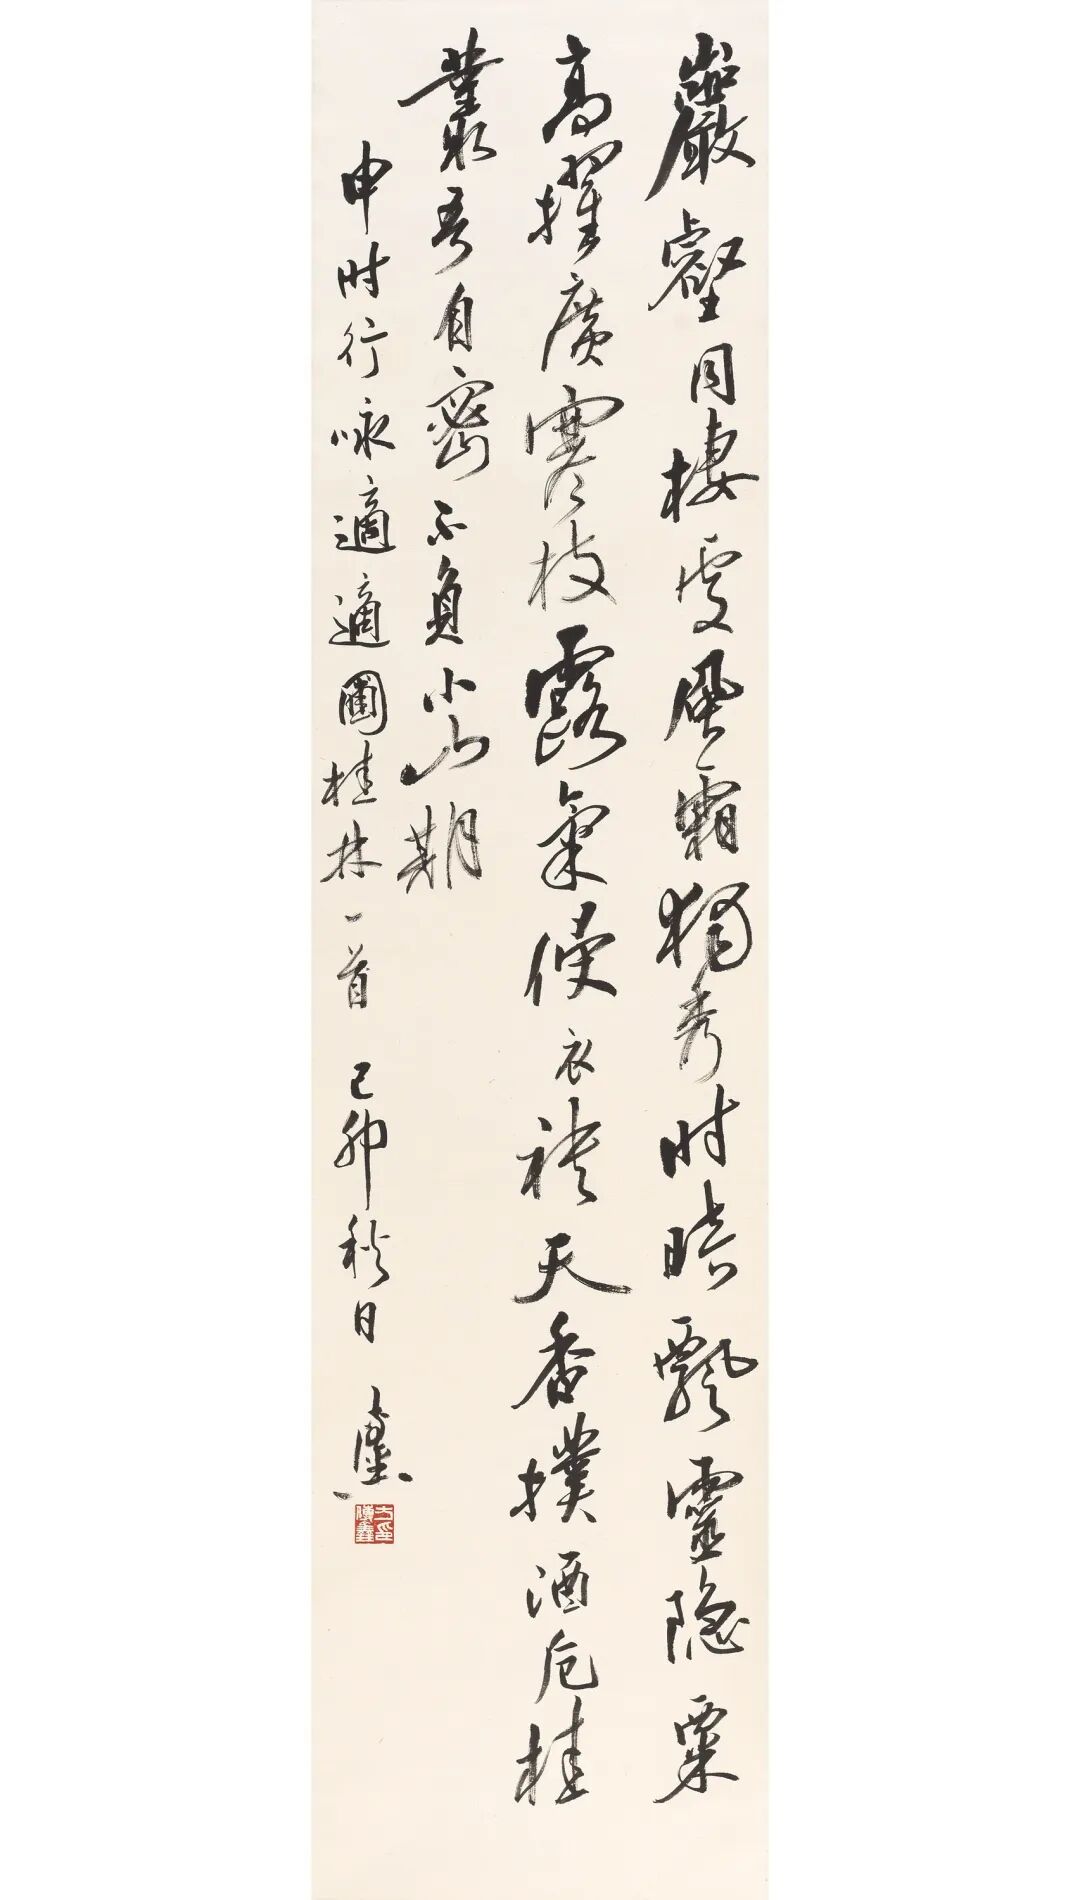 巖壑同棲處風霜獨秀時暗飄靈隱粟
高擢廣寒枝露氣侵衣袂天香撲酒卮桂
叢吾自密不負小山期
申时行咏適適圃桂林一首 己卯秋日